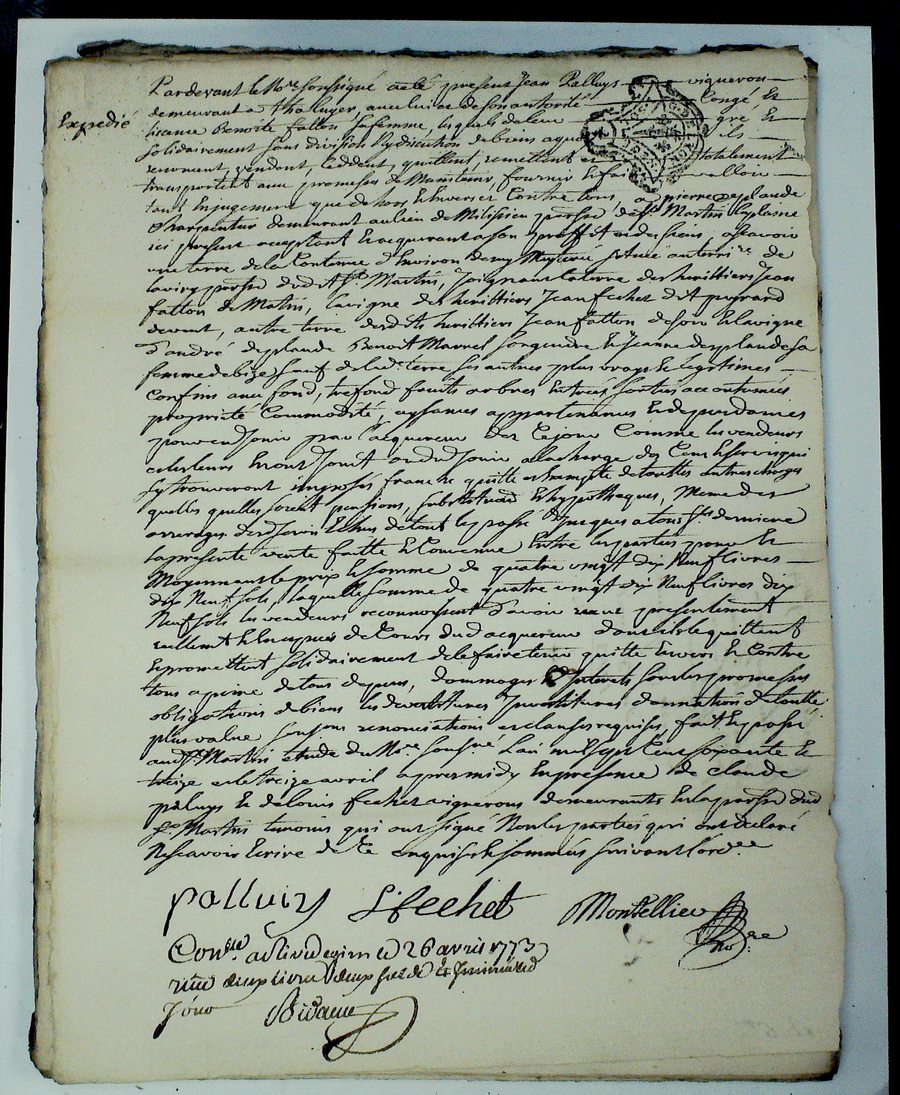 Pardevant le No.re soussigné a été present Jean Palluys vigneron
Expedié
demeurant a Thaluyer, avec luy et de son autorité Congé Et
licence Benoite fatton sa femme, lesquels de leur gré Et
solidairement sans division Ny discution de biens a quoy ils
renoncent, vendent, Ceddent, quittent, remettent et totalement
transportent avec promesse de Maintenir, fournir et faire valloir
tant En jugement que dehors Envers et Contre tous, a pierre desplaude
Charpentier demeurant au lieu de Milisieu parsse de St. Martin Laplaine
ici present acceptant Et acquerant a son proffit et des siens, ascavoir
une terre de la Contenue d'Environ demy Meyterée située au terri.re de
parsse dud.t St. Martin, Joignant la terre des heritiers Jean
fatton de Matin, la vigne des heritiers Jean fechet dit
devent, autre terre desd.ts heritiers Jean fatton de soir Et la vigne
d'andré desplaude Benoit Marrel son gendre Et Jeanne desplaude sa
femme de bize, sauf de lad.e terre ses autres plus vrays Et légitimes
Confins avec fond, trefond fruits arbres Entrées sorties accoutumées
proprieté Commodité, aysances appartenances Et dependances
pour en Jouir par l'acquereur dez Cejour Comme les vendeurs
et les leurs En ont Jouit ou du Jouir a la charge des Cens Et servis qui
s'y trouveront imposes franche quitte et exempte de touttes autres charges
quelles quelles soient pensions, substitution Et hypotheques, Meme des
arrerages desd. servis Echus de tout le passé Jusques a la St. derniere
la presente vente faitte Et Convenue Entre les parties pour Et
Moyennant le prix Et somme de quatre vingt dix Neuf livres
dix Neuf sols, laquelle somme de quatre vingt dix Neuf livres dix
Neuf sols les vendeurs reconnoissent d'avoir receue presentement
reellement Et En especes de Cours dud. acquereur dont ils le quittent
Et promettent solidairement de le faire tenir quitte Envers Et Contre
tous a peine de tous depens, dommages Et Interets sous les promesses
obligations de biens les devestitures Investitures donnation de toutte
plus value soumissions renonciations et clauses requises, fait Et passé
aud. St. Martin etude du No.re sousg.né L'an mil sept Cent soixante Et
treize et le treize avril apres midy En presence de claude
palluys Et de Louis fechet vignerons demeurants En la parsse dud.
St. Martin temoins qui ont signé Non les parties qui ont declaré
Ne scavoir Ecrire de Ce Enquises Et sommées suivant l'ord.ce
palluys L fechet Montellier
No.re
Con.lle a Rivedegier le 26 avril 1773
recu
Jono Bidaue